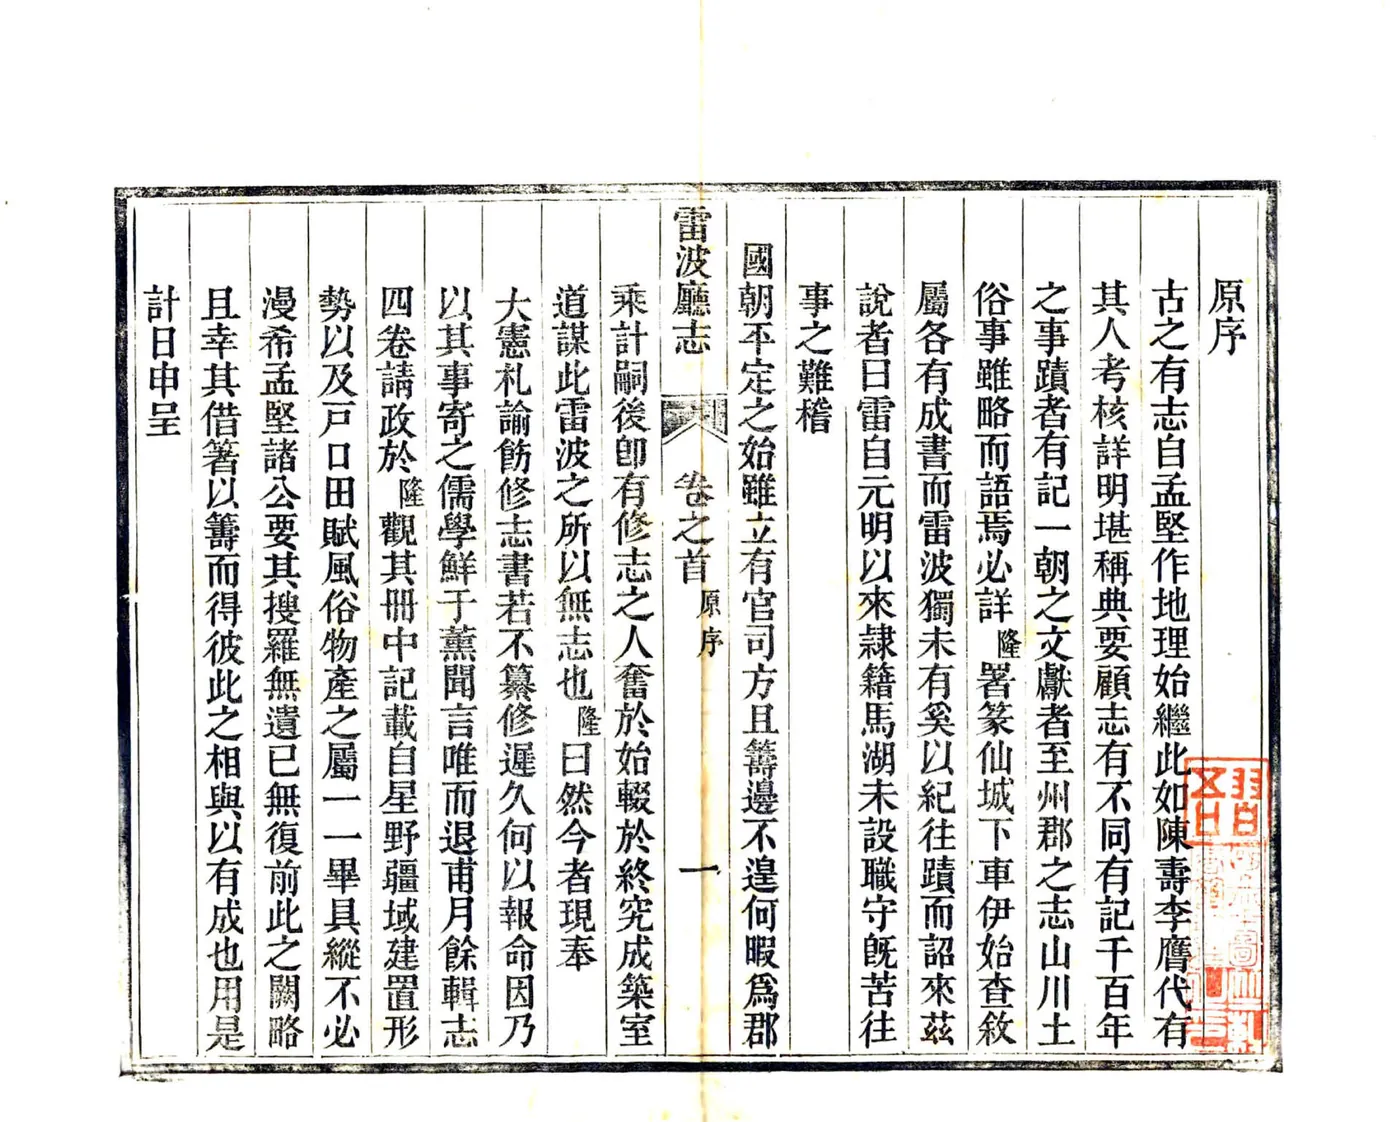 原序
古之有志自孟堅作地理始繼此如陳壽李膺代有
其人考核詳明堪稱典要顧志有不同有記千百年
之事蹟者有記一朝之文獻者至州郡之志山川土
俗事雖略而語焉必詳隆署篆仙城下車伊始查敘
屬各有成書而雷波獨未有奚以紀往蹟而詔來茲
說者曰雷自元明以來隷籍馬湖未設職守旣苦往
事之難稽
國朝平定之始雖立有官司方且籌邊不遑何暇爲郡
雷波廳志 卷之首 原序 一
乘計嗣後卽有修志之人奮於始輟於終究成築室
道謀此雷波之所以無志也隆曰然今者現奉
大憲札諭飭修志書若不纂修遲久何以報命因乃
以其事寄之儒學鮮于薰聞言唯而退甫月餘輯志
四卷請政於隆觀其冊中記載自星野疆域建置形
勢以及戸口田賦風俗物產之屬一一畢具縱不必
漫希孟堅諸公要其搜羅無遺已無復前此之闕略
且幸其借箸以籌而得彼此之相與以有成也用是
計日申呈